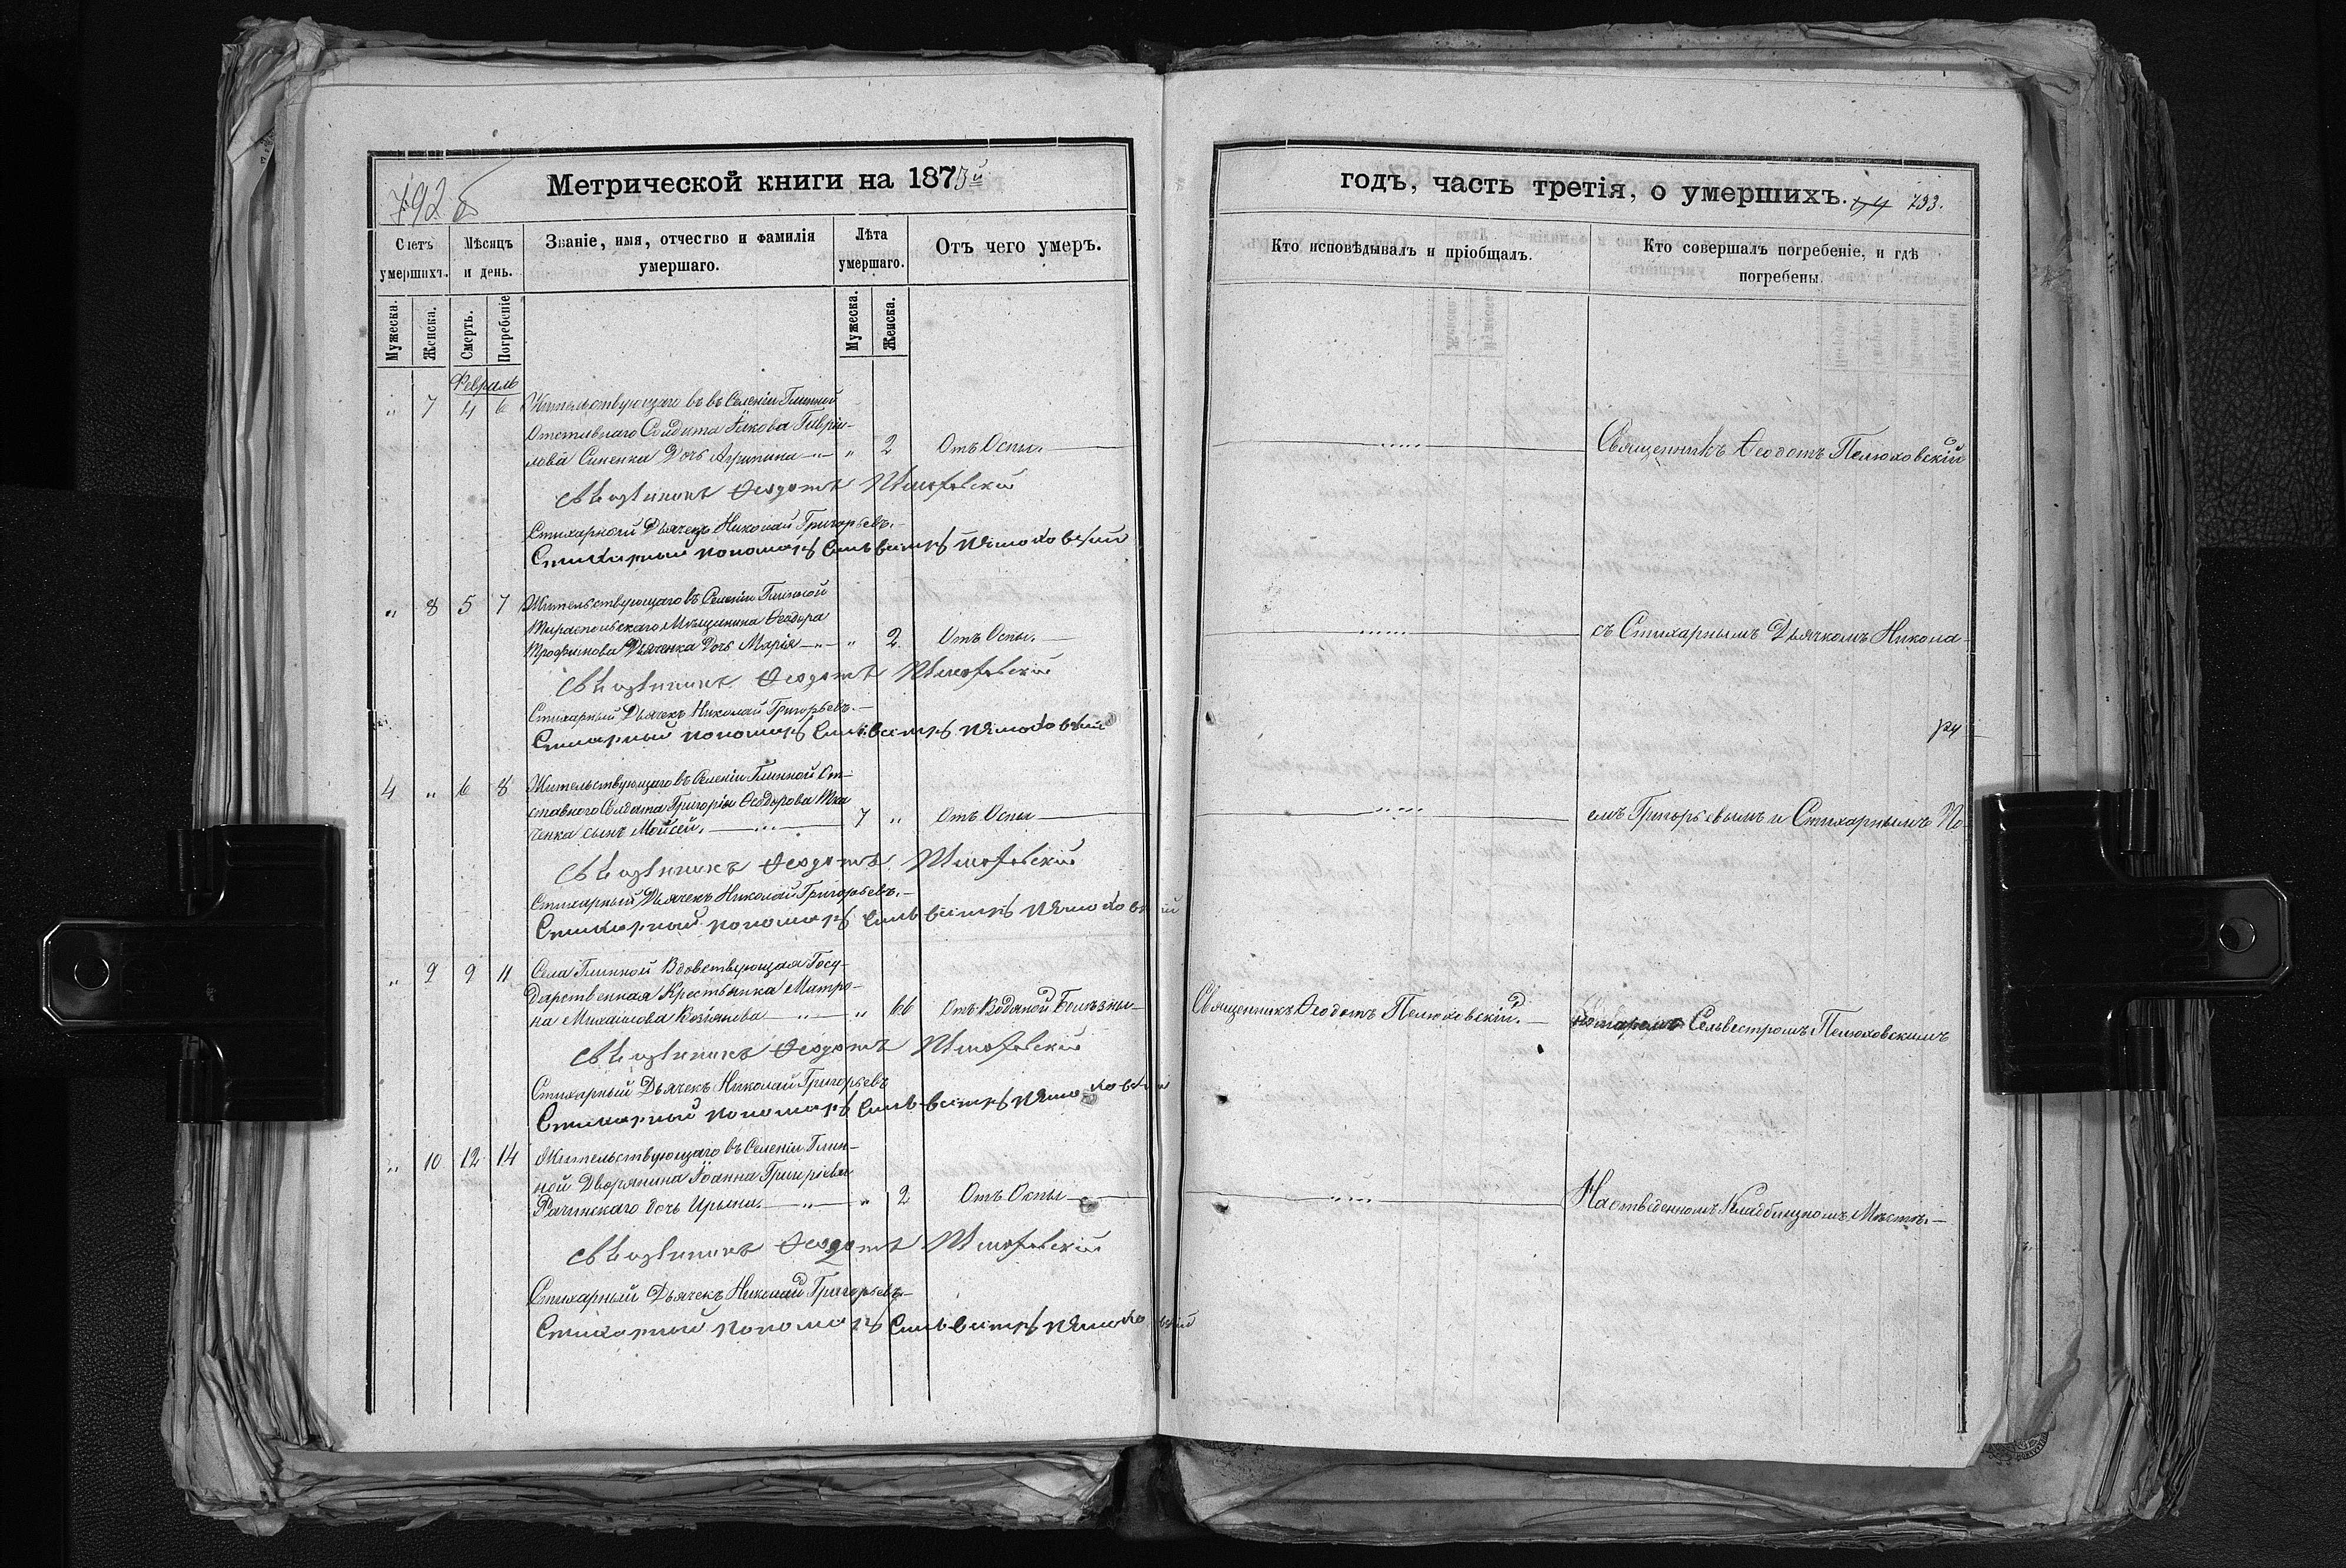 792 б
Метрической книги на 1873й
Счетъ умершихъ.
Мѣсяцъ и день.
Званіе, имя, отчество и фамилія умершаго.
Лѣта умершаго.
Отъ чего умеръ.
Мужеска.
Женска.
Смерть.
Погребеніе
Мужеска.
Женска.
Февраль
„ 7 4 6 Жительствующаго въ въ Селеніи Глинной
Отставнаго Солдата Іакова Гаврі-
лова Синенка Дочь Агрипина „ 2 Отъ Оспы.
Священникъ Ѳеодотъ Пелюховскій
Стихарный Дьячекъ Николай Григорьевъ.
Стихарный пономарь Сильвестръ Пелюховский
„ 8 5 7 Жительствующаго въ Селеніи Глинной
Тираспольскаго Мѣщанина Ѳеодора
Трофимова Дьяченка Дочь Марія „ 2 Отъ Оспы.
Священникъ Ѳеодотъ Пелюховскій
Стихарный Дьячекъ Николай Григорьевъ.
Стихарный пономарь Сильвестръ Пелюховский
4 „ 6 8 Жительствующаго въ Селеніи Глинной От-
ставного Солдата Григорія Ѳеодорова Тка
ченка сынъ Моисей. 7 „ Отъ Оспы
Священникъ Ѳеодотъ Пелюховскій
Стихарный Дьячекъ Николай Григорьевъ.
Стихарный пономарь Сильвестръ Пелюховский
„ 9 9 11 Села Глинной Вдовствующая Госу-
дарственная Крестьянка Матро-
на Михайлова „ 66 Отъ Водяной Болѣзны
Священникъ Ѳеодотъ Пелюховскій
Стихарный Дьячекъ Николай Григорьевъ
Стихарный пономарь Сильвестръ Пелюховский
„ 10 12 14 Жительствующаго въ Селеніи Глин-
ной Дворянина Іоанна Григоріева
Рачинскаго дочь Ирына. „ 2 Отъ Оспы
Священникъ Ѳеодотъ Пелюховскій
Стихарный Дьячекъ Николай Григорьевъ
Стихарный пономарь Сильвестръ Пелюховский
годъ, часть третія, о умершихъ. 793.
Кто исповѣдывалъ и пріобщалъ.
Кто совершалъ погребеніе, и гдѣ погребены.
Священникъ Ѳеодотъ Пелюховскій
съ Стихарнымъ Дьячкомъ Никола-
емъ Григорьевымъ и Стихарнымъ По-
Священникъ Ѳеодотъ Пелюховскій. номаремъ Сельвестромъ Пелюховскимъ
На отведенномъ Кладбищномъ Мѣстѣ.